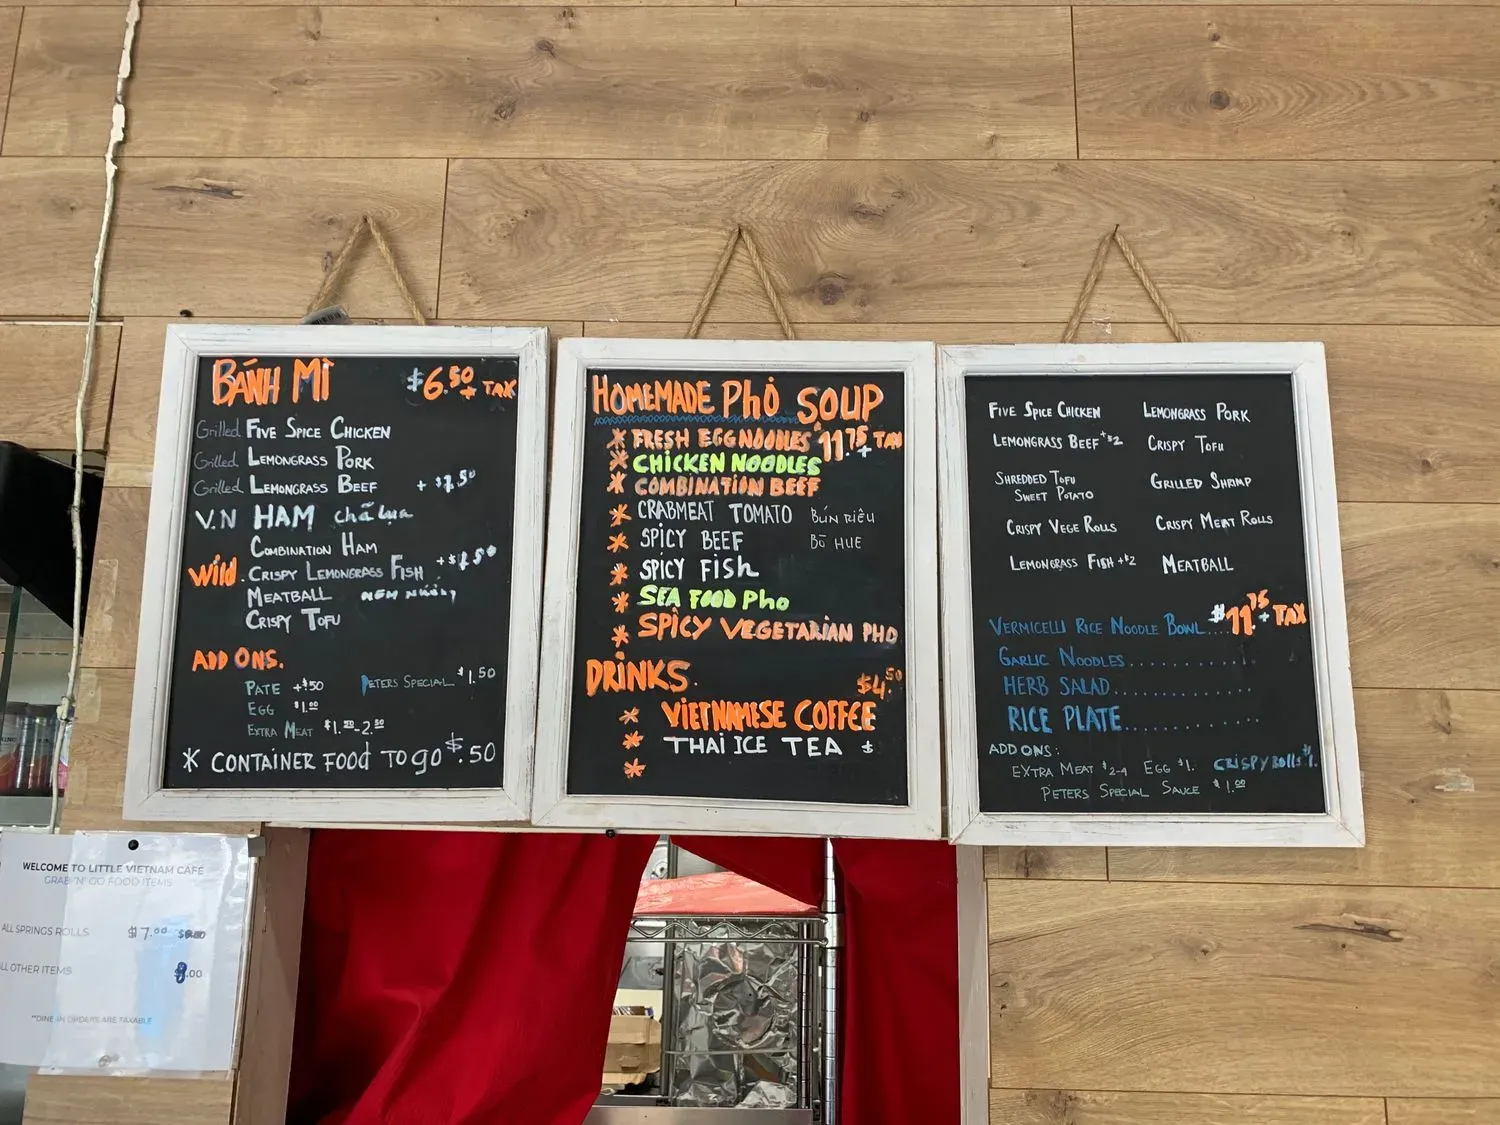 BÁNH MÌ $6.50 + TAX
Grilled FIVE SPICE CHICKEN
Grilled LEMONGRASS PORK
Grilled LEMONGRASS BEEF + $1.50
V.N HAM chả lụa
COMBINATION HAM
Wild. CRISPY LEMONGRASS FISH + $1.50
MEATBALL NEM NƯỚNG
CRISPY TOFU
ADD ONS.
PATE + $.50 PETERS SPECIAL $1.50
EGG $1.00
EXTRA MEAT $1.50-2.50
* CONTAINER FOOD TO GO $.50
HOMEMADE PHỞ SOUP
* FRESH EGG NOODLES $11.75 + TAX
* CHICKEN NOODLES
* COMBINATION BEEF
* CRABMEAT TOMATO BÚN RIÊU
* SPICY BEEF BÒ HUE
* SPICY FISH
* SEA FOOD PHO
* SPICY VEGETARIAN PHO
DRINKS. $4.50
* VIETNAMESE COFFEE
* THAI ICE TEA
*
FIVE SPICE CHICKEN LEMONGRASS PORK
LEMONGRASS BEEF +$2 CRISPY TOFU
SHREDDED TOFU
SWEET POTATO GRILLED SHRIMP
CRISPY VEGE ROLLS CRISPY MEAT ROLLS
LEMONGRASS FISH +$2 MEATBALL
VERMICELLI RICE NOODLE BOWL.... $11.75 + TAX
GARLIC NOODLES...........
HERB SALAD............
RICE PLATE............
ADD ONS:
EXTRA MEAT $2-4 EGG $1. CRISPY ROLLS $1.
PETERS SPECIAL SAUCE $1.00
WELCOME TO LITTLE VIETNAM CAFÉ
GRAB 'N' GO FOOD ITEMS
ALL SPRINGS ROLLS $7.00
LL OTHER ITEMS 8.00
**DINE IN ORDERS ARE TAXABLE